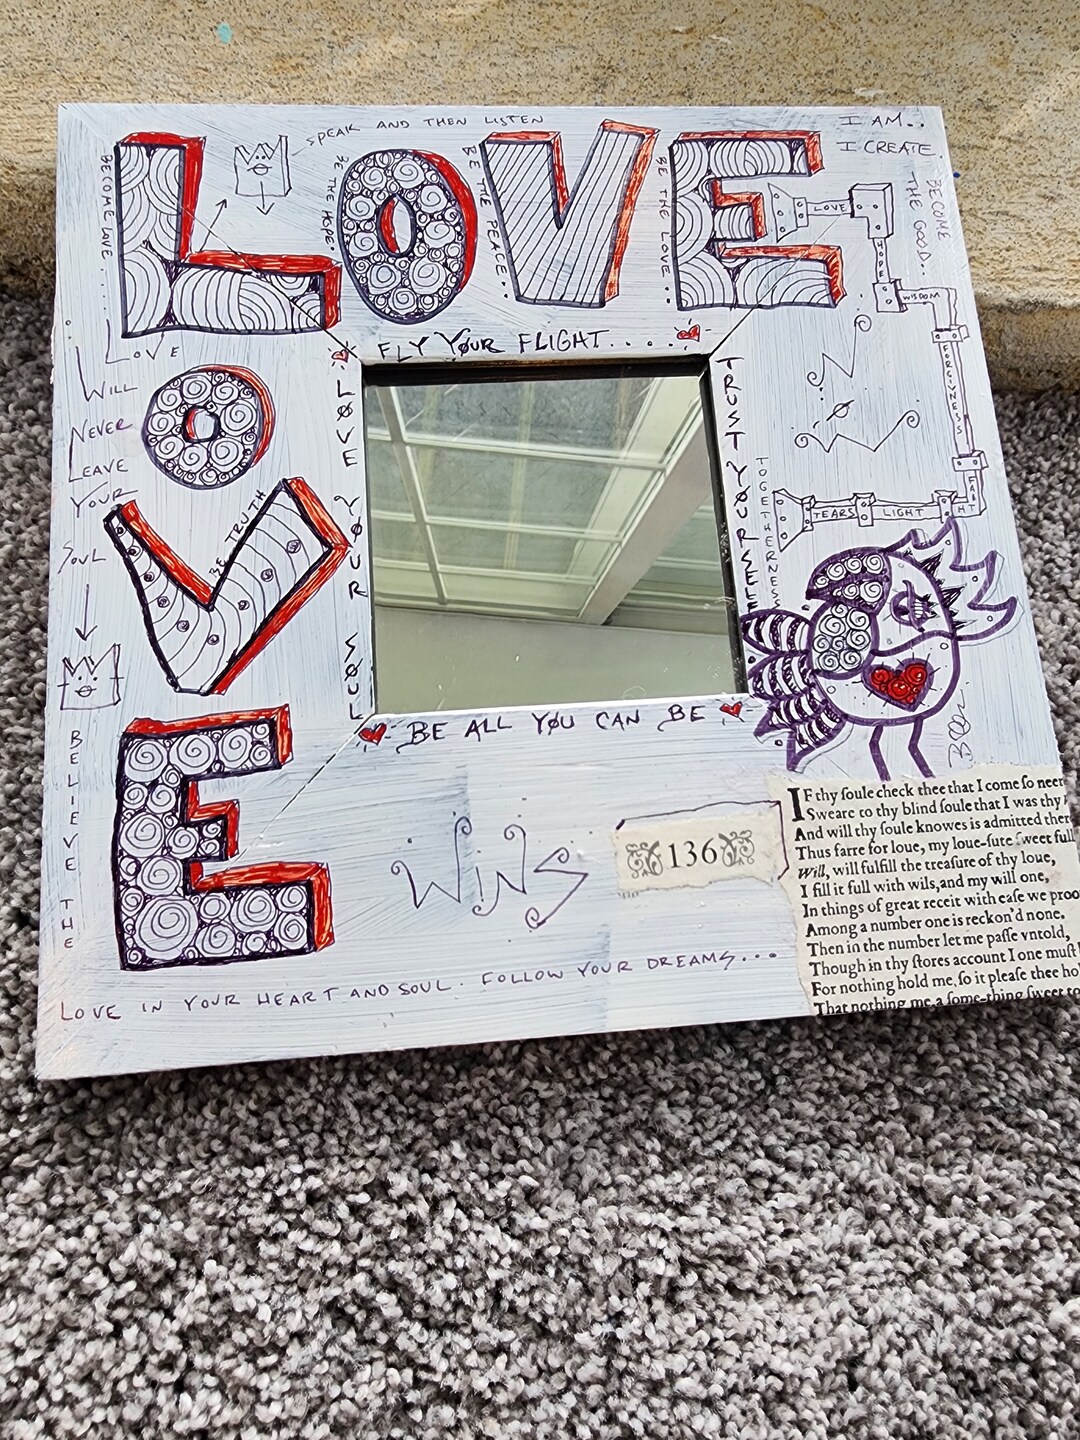 SPEAK AND THEN LISTEN
I AM..
I CREATE.
BECOME
THE GOOD..
LOVE
BECOME LOVE....
BE THE HOPE.
BE THE PEACE..
BE THE LOVE..
LOVE
HOPE
WISDOM
FORGIVENESS
FAITH
LIGHT
TEARS
FLY YØUR FLIGHT.....
LOVE
WILL
NEVER
LEAVE
YOUR
SOUL
OVE
BE TRUTH
LØVE YØUR SØUL
TRUST YOURSELF
TOGETHERNESS
WiNS
BE ALL YØU CAN BE
BELIEVE THE
WiNS
136
IF thy ſoule check thee that I come ſo neer
Sweare to thy blind ſoule that I was thy
And will thy ſoule knowes is admitted there
Thus farre for loue, my loue-ſute ſweet full
Will, will fulfill the treaſure of thy loue,
I fill it full with wils, and my will one,
In things of great receit with eaſe we proo
Among a number one is reckon'd none.
Then in the number let me paſſe vntold,
Though in thy ſtores account I one muſt
For nothing hold me, ſo it pleaſe thee ho
That nothing me, a ſome-thing ſweet to
LOVE IN YOUR HEART AND SOUL. FOLLOW YOUR DREAMS...